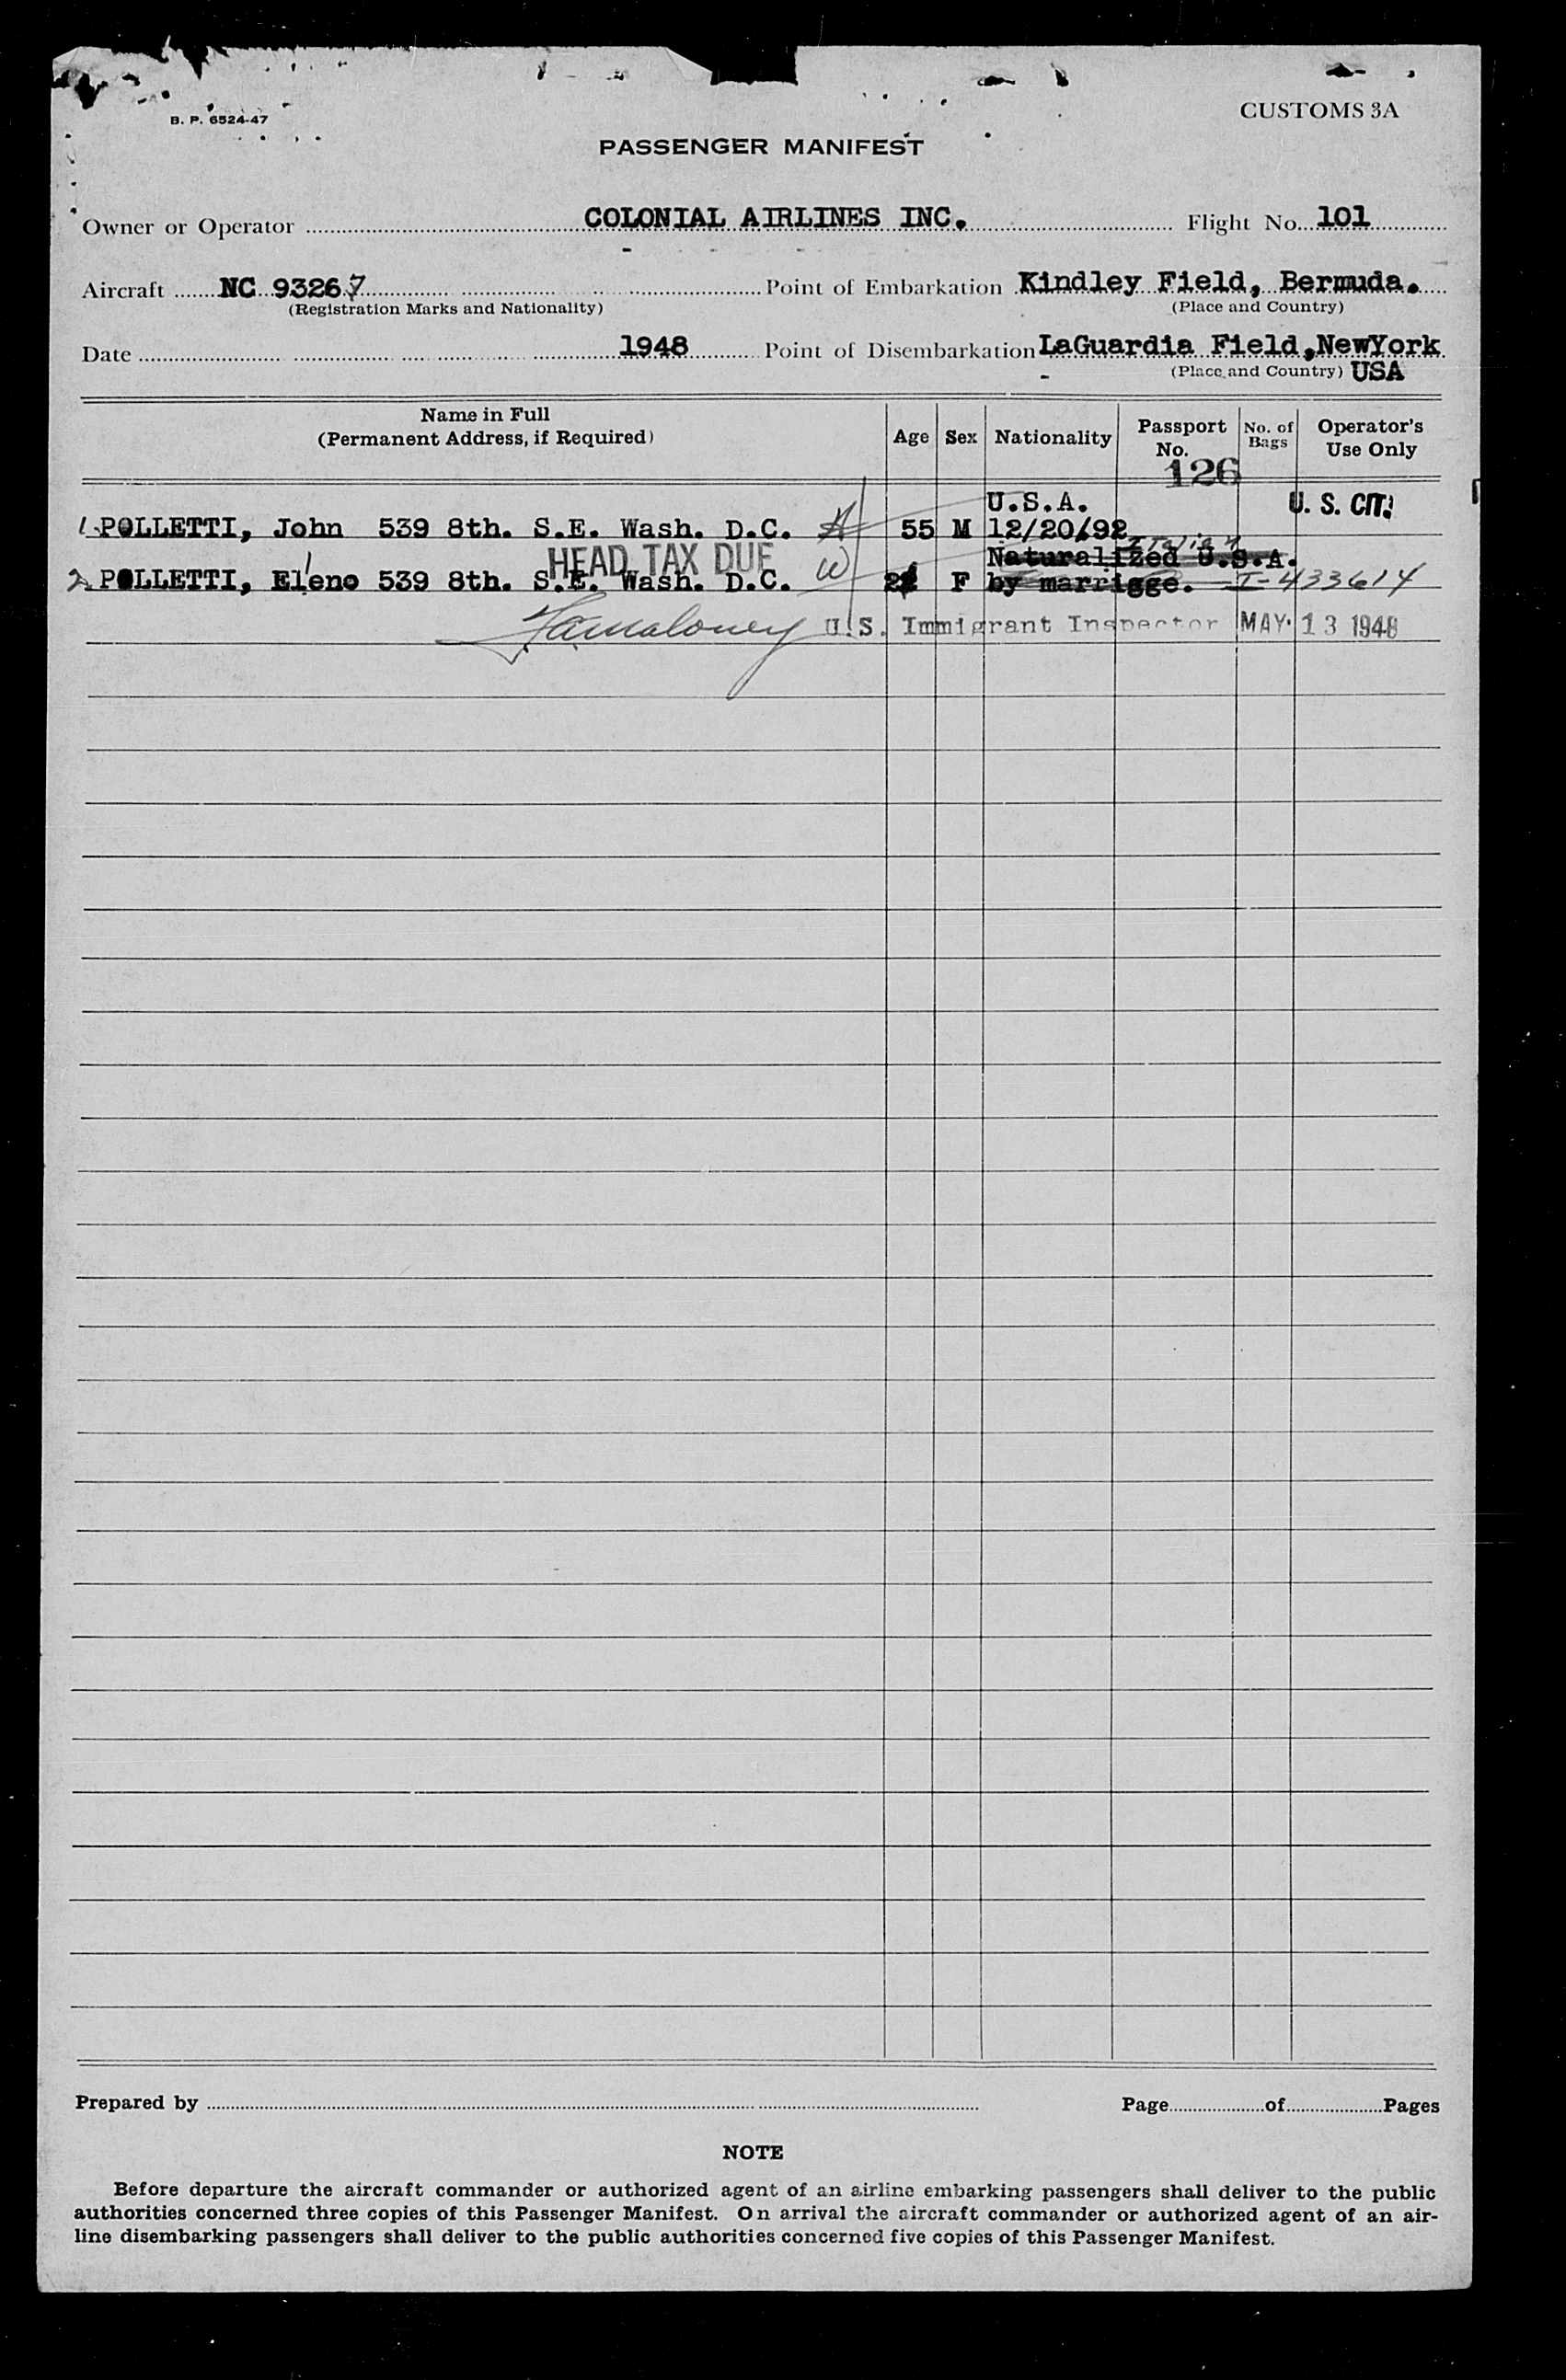 B. P. 6524-47
CUSTOMS 3A
PASSENGER MANIFEST
Owner or Operator COLONIAL AIRLINES INC. Flight No. 101
Aircraft NC 93267 Point of Embarkation Kindley Field, Bermuda.
(Registration Marks and Nationality) (Place and Country)
Date 1948 Point of Disembarkation LaGuardia Field, NewYork
(Place and Country) USA
Name in Full
(Permanent Address, if Required) Age Sex Nationality Passport No. No. of Bags Operator's Use Only
126
U.S.A. U. S. CIT.
1 POLLETTI, John 539 8th. S.E. Wash. D.C. 55 M 12/20/92
HEAD TAX DUE Naturalized U.S.A. Italian
2 POLLETTI, Eleno 539 8th. S.E. Wash. D.C. W F by marrigge. I-433614
U.S. Immigrant Inspector MAY 13 1948
Prepared by Page of Pages
NOTE
Before departure the aircraft commander or authorized agent of an airline embarking passengers shall deliver to the public
authorities concerned three copies of this Passenger Manifest. On arrival the aircraft commander or authorized agent of an air-
line disembarking passengers shall deliver to the public authorities concerned five copies of this Passenger Manifest.